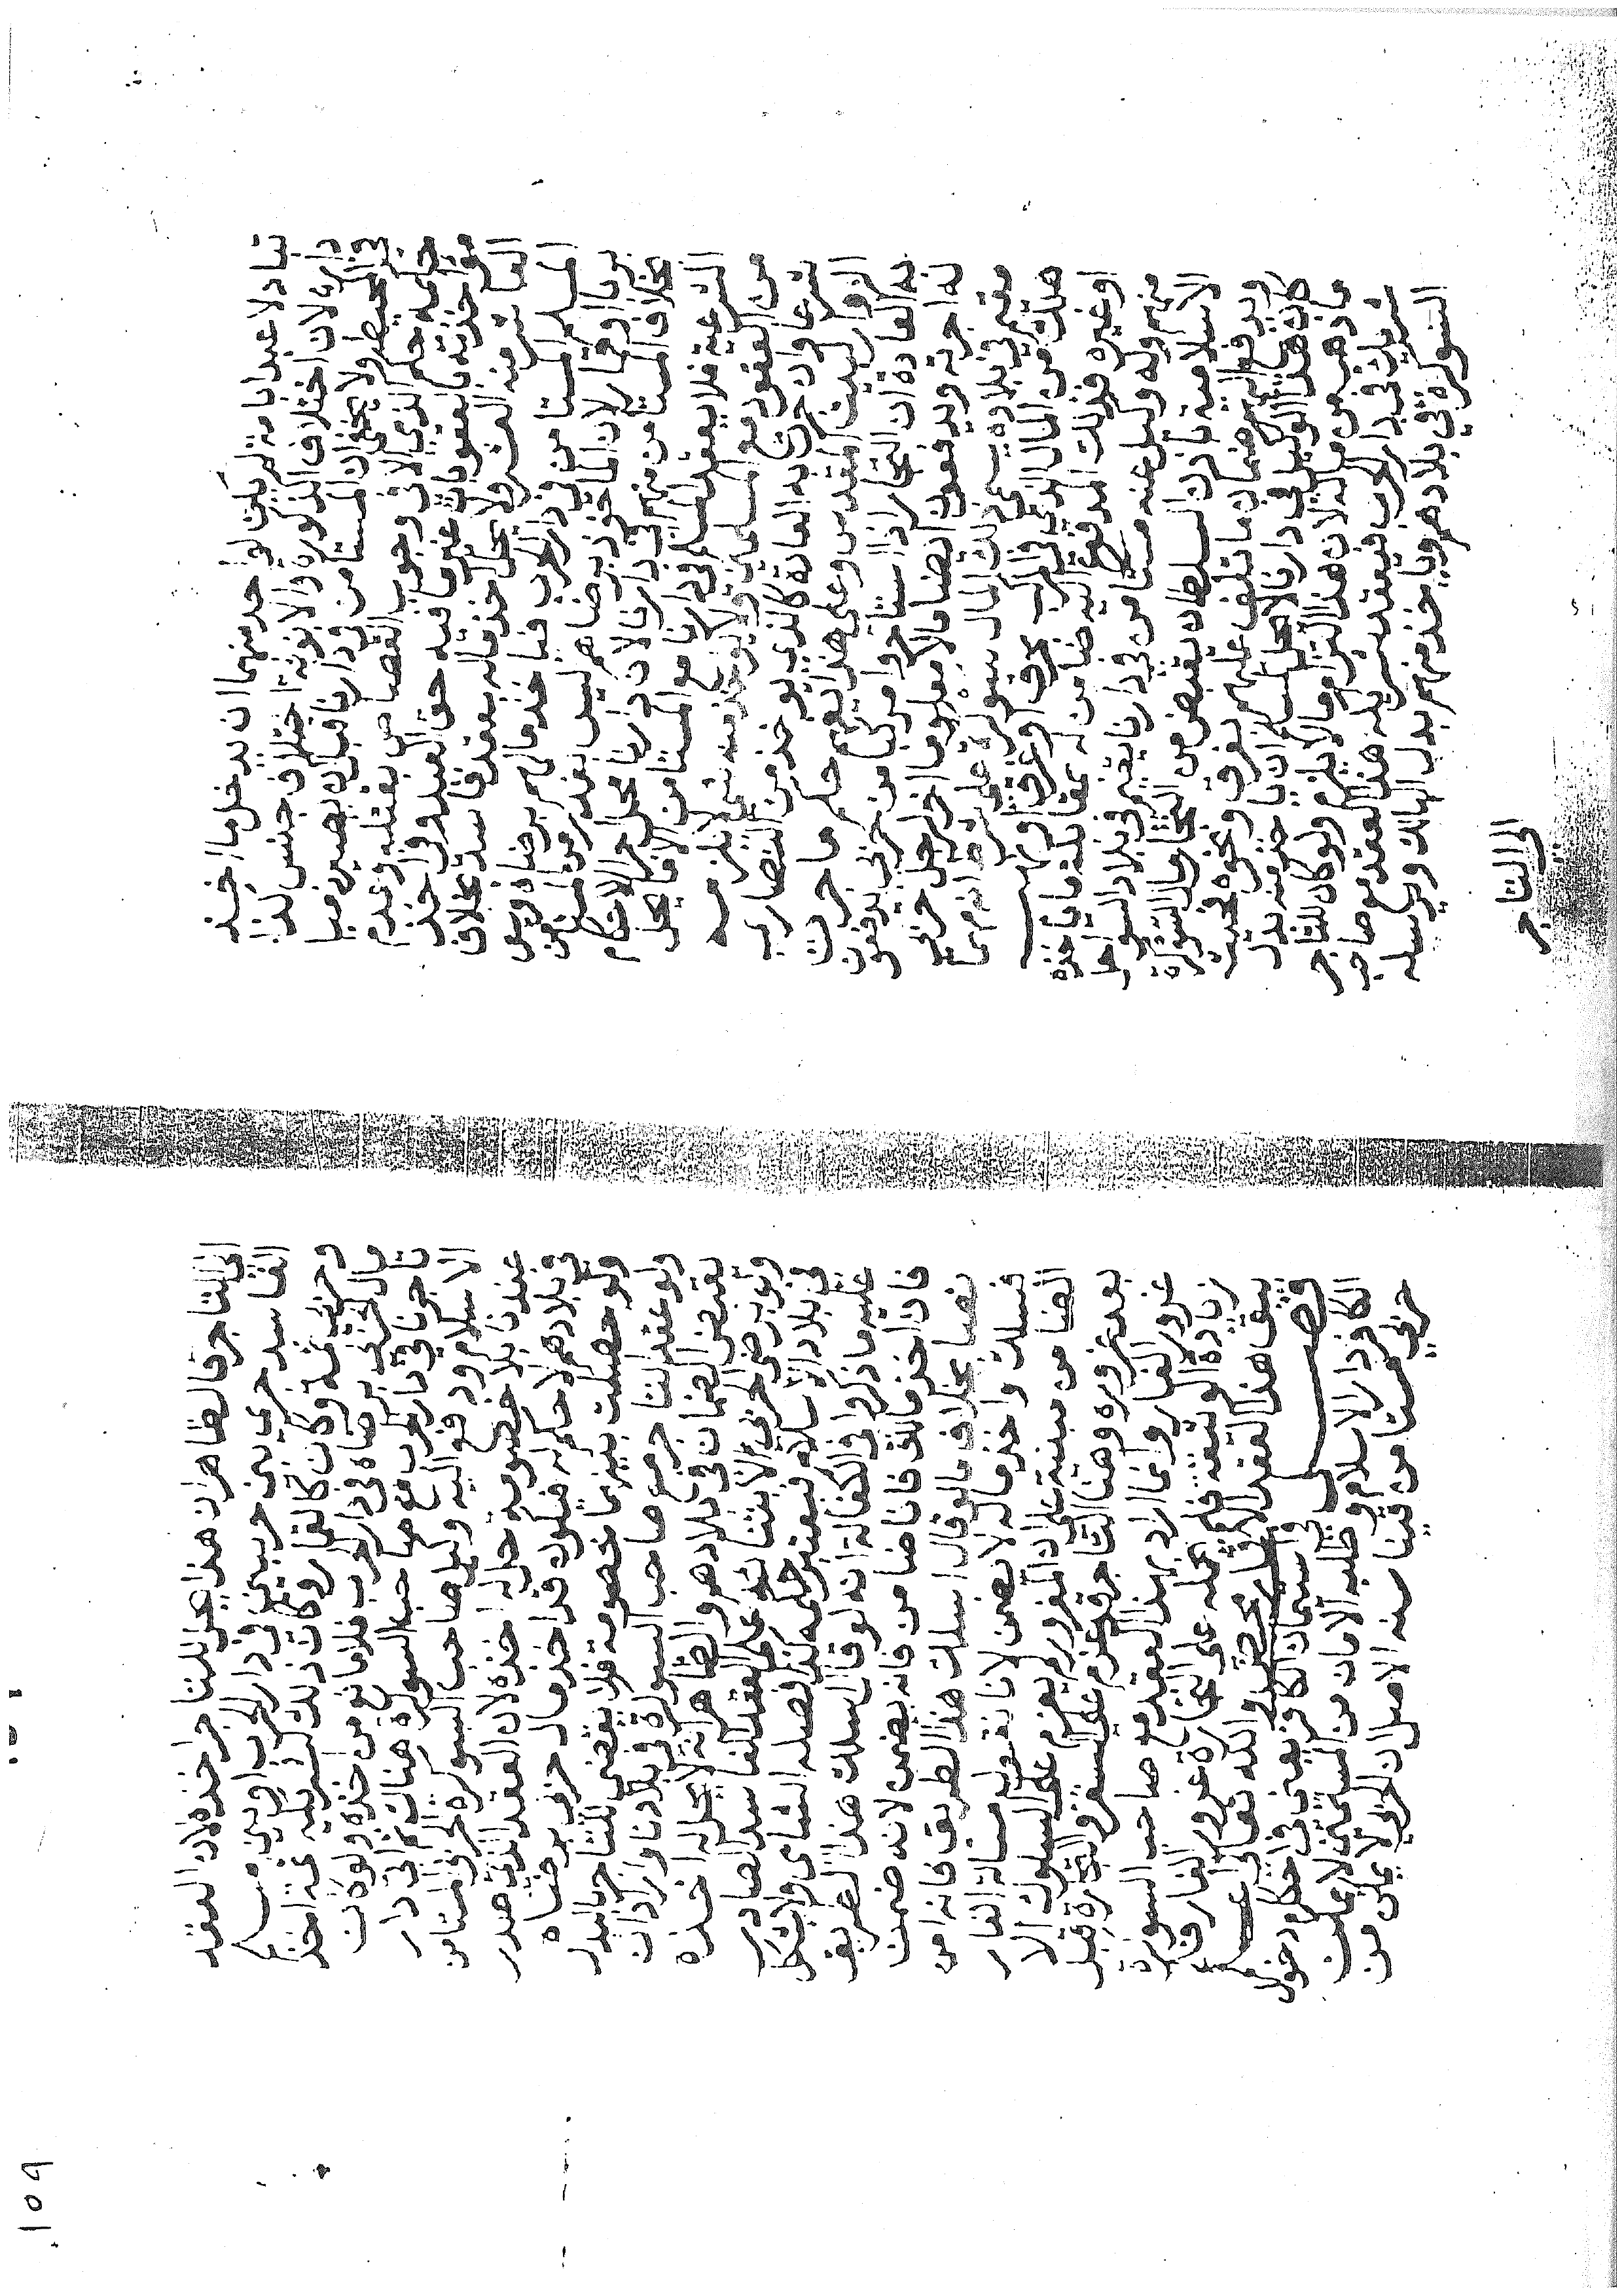 تبادلا عبدا بامة لم يكن لواحد منهما ان يدخل ما اخذ
داره لان اختلاف الذكورة والانوثة اختلاف جنس كذا
في المحيط ولا يخفى ان المستامن في دارنا قبل ان يصير ذميا
حكمه حكم الذمي الا في وجوب القصاص بقتله وعدم
مؤاخذته بالعقوبات غير ما فيه حق العبد وفي اخذ
العاشر منه العشر ولا يحل اخذ ماله بعقد فاسد بخلاف
المسلم المستامن في دار الحرب فله اخذ مالهم برضاهم ولو
بربا او قمار لان الماخوذ برضاهم ليس بغدر من المستامن
بخلاف المستامن منهم في دارنا لان دارنا محل اجراء الاحكام
الشرعية فلا يعقد المسلم في دارنا مع المستامن الا ما يحل
من العقود مع المسلمين ولا يؤخذ منه شيء لا يلزمه
شرعا وان جرت به العادة كالذي يؤخذ من النصارى
الزوار لبيت المقدس وعلى هذا يعلم حكم ما جرت
به العادة ان التجار اذا استاجروا مركبا من حربي يدفعون
له اجرته ويدفعون ايضا مالا معلوما الى رجل حربي
مقيم في بلاده يسمى ذلك المال سوكرة على انه مهما
هلك من المال الذي في المركب بحرق او غرق او نهب
او غيره فذلك المدفوع اليه ضامن له بمقابلة ما ياخذه
منهم وله وكيل عنه مستامن في دارنا يقيم في بلاد السواحل
الاسلامية باذن السلطان يقبض من التجار مال السوكرة
ويدفع اليهم ضمان ما تلف عليهم بغرق ونحوه
كان هذا الوكيل في دارنا لا يحل للمسلم ان ياخذ منه بدل
ما ذهب من ماله لان هذا التزام ما لا يلزم ولو كان للتاجر
شريك في دار الحرب فيعقد شريكه هذا العقد مع صاحب
السوكرة في بلادهم وياخذ منهم بدل الهالك ويرسله
الى التاجر
الى التاجر فالظاهر ان هذا يحل للتاجر اخذه لان العقد
الفاسد جرى بين حربيين في دار الحرب او بين مسلم
وحربي ثمة وكان كالقمار وكان ذلك الشريك ثمة اخذ
مال الحربي برضاه في دار الحرب فلا مانع من اخذه ولو كان
تاجرنا في دار الحرب مع صاحب السوكرة هناك ثم اتى دار
الاسلام ودفع اليه وكيل صاحب السوكرة الحربي المستامن
عندنا بلا خصومة حل له اخذه لان العقد الذي صدر
في بلادهم لا حكم له فيكون قد اخذ مال حربي برضاه
ولو حصلت بينهما خصومة فلا يقضى للتاجر بالبدل
ولو عقد التاجر مع صاحب السوكرة في بلادنا واراد ان
يقبض الضمان في بلادهم والظاهر انه لا يحل له اخذه
ولو برضى الحربي لابتنائه على العقد الفاسد الصادر
في بلاد الاسلام فيعتبر حكمه كذا فصله الشامي ولا يشكل
عليه ما ذكروا في الكفالة انه لو قال اسلك هذا الطريق
فان اخذ مالك فانا ضامن فانه يضمن لانه ضمن
نصا بخلاف ما لو قال اسلك هذا الطريق فانه امن
فسلك واخذ ماله لا يضمن لانا نقول مسالة الغار
الضامن مبنية على ان المغرور لم يعزم على السلوك الا
بعد غروره وهنا التاجر قد عزم على السفر والتجارة قبل
غرور الغار وانما اراد بهذا العقد مع صاحب السوكرة
زيادة الوثيقة فلم يحمله على التجارة غرور الغار فلم
يبق هذا العقد الا قمارا محضا والله تعالى اعلم
فصل في استئمان الكافر يعني في احكام دخول
الكافر دار الاسلام وطلبه الامان من المسلمين لا يمكن
حربي مستامن فينا سنة الاصل ان الحربي لا يمكن من
١٥٩